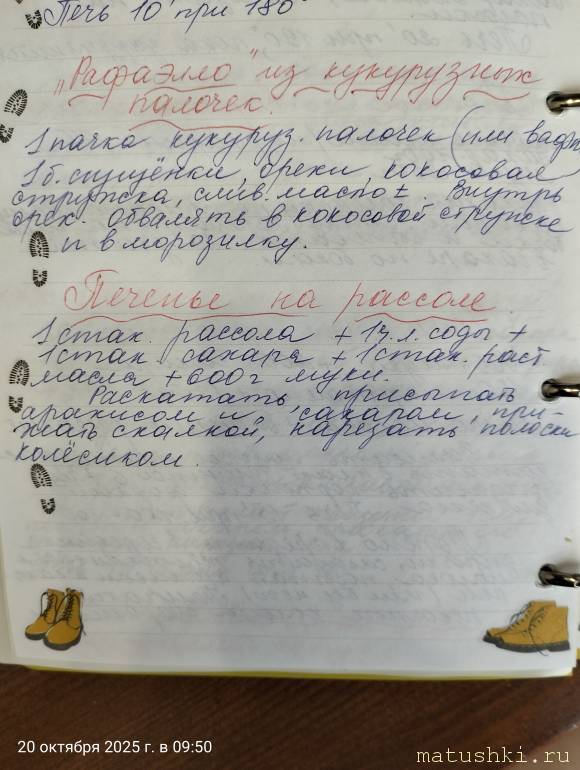 Печь 10' при 180°
„Рафаэлло" из кукурузных
палочек.
1 пачка кукуруз. палочек (или вафли
1 б. сгущёнки, орехи, кокосовая
стружка, слив. масло ±. Внутрь
орех. Обвалять в кокосовой стружке
и в морозилку.
Печенье на рассоле
1 стак. рассола + 1 ч.л. соды +
1 стак сахара + 1 стак. раст
масла + 600 г муки.
Раскатать, присыпать
арахисом и сахаром, при-
жать скалкой, нарезать полоски
колёсиком.
20 октября 2025 г. в 09:50
matushki.ru